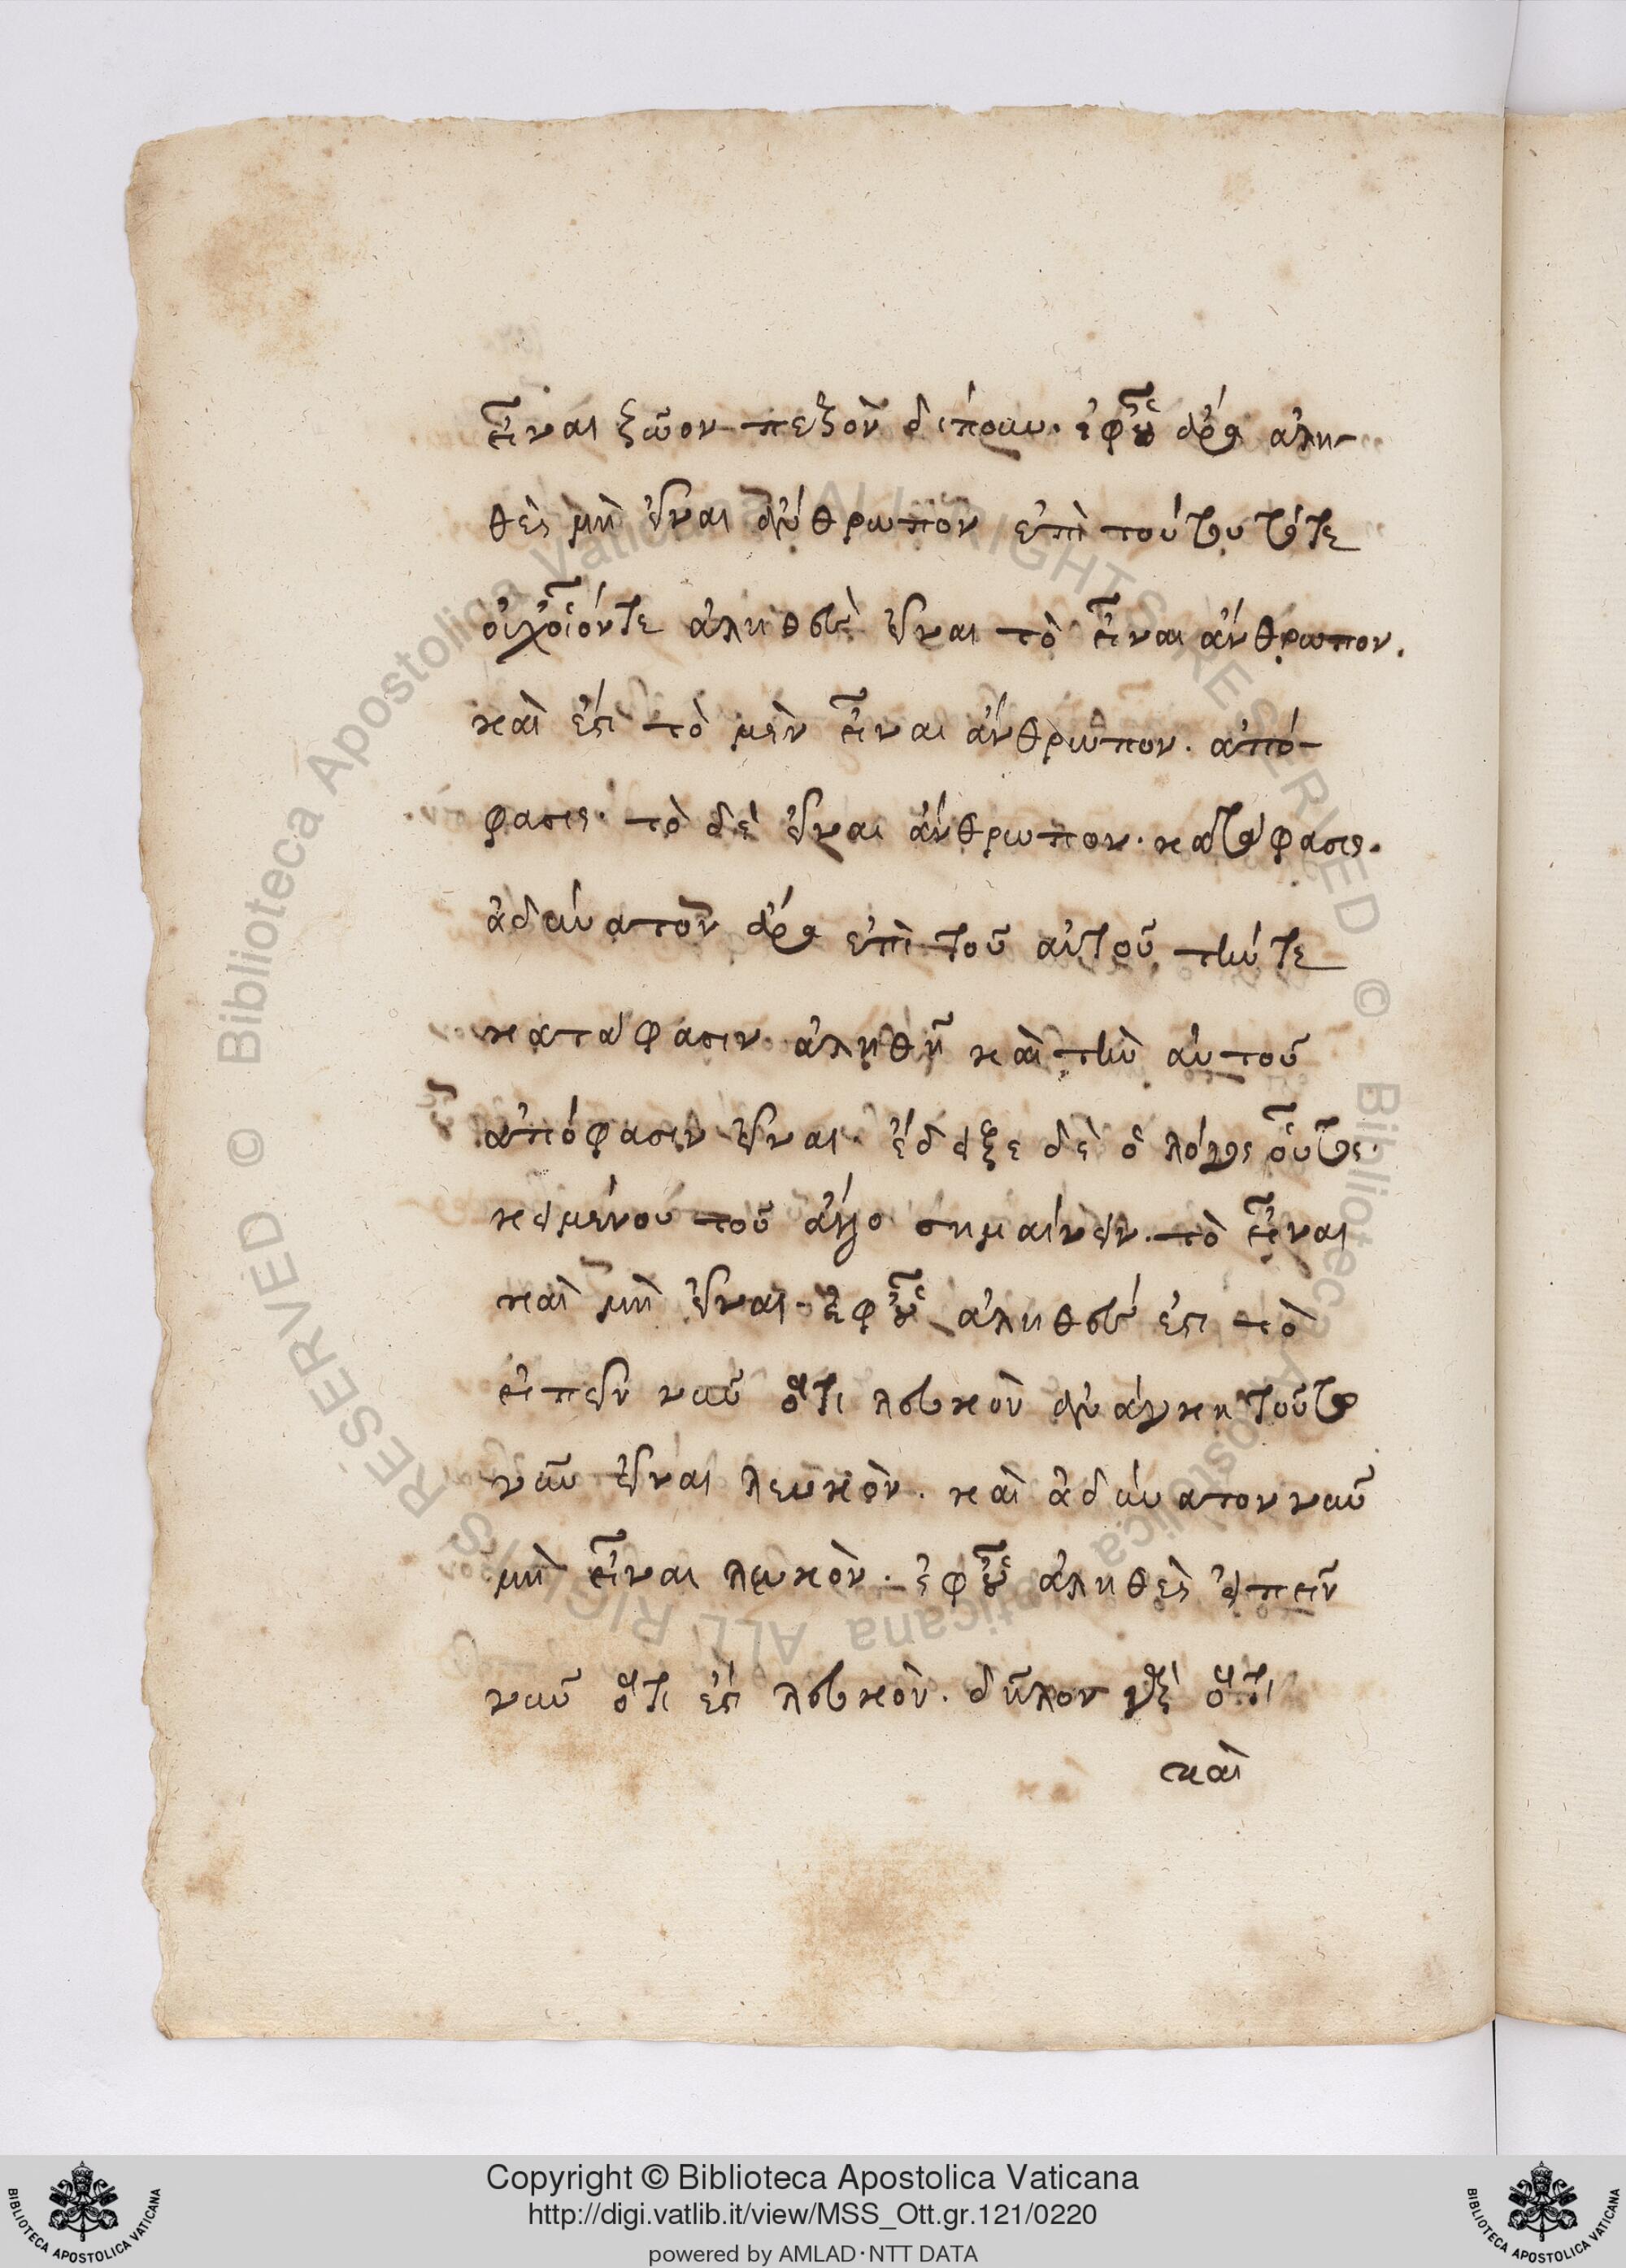 εἶναι ζῶον πεζὸν δίπουν. ἐφ' οὗ ἄρα ἀλη-
θὲς μὴ εἶναι ἄνθρωπον ἐπὶ τούτου τότε
οὐχ οἷόντε ἀληθεὺς εἶναι τὸ εἶναι ἄνθρωπον.
καὶ ἔστι τὸ μὲν εἶναι ἄνθρωπον. ἀπό-
φασις. τὸ δὲ εἶναι ἄνθρωπον. κατάφασις.
ἀδύνατον ἄρα ἐπὶ τοῦ αὐτοῦ τήντε
κατάφασιν ἀληθῆ καὶ τὴν αὐτοῦ
ἀπόφασιν εἶναι. ἔδειξε δὲ ὁ λόγος οὗτος.
κειμένου τοῦ ἄλλο σημαίνειν. τὸ εἶναι
καὶ μὴ εἶναι. ἐφ' οὗ ἀληθεύ ἐστι τὸ
εἰπεῖν νῦν ὅτι λευκὸν ἀνάγκη τοῦτο
νῦν εἶναι λευκὸν. καὶ ἀδύνατον νῦν
μὴ εἶναι λευκὸν. ἐφ' οὗ ἀληθὲς εἰπεῖν
νῦν ὅτι ἐστὶ λευκὸν. δῆλον γὰρ ὅτι
καὶ
Copyright © Biblioteca Apostolica Vaticana
http://digi.vatlib.it/view/MSS_Ott.gr.121/0220
powered by AMLAD·NTT DATA
BIBLIOTECA APOSTOLICA VATICANA
BIBLIOTECA APOSTOLICA VATICANA
© Biblioteca Apostolica Vaticana ALL RIGHTS RESERVED © Biblioteca Apostolica Vaticana ALL RIGHTS RESERVED